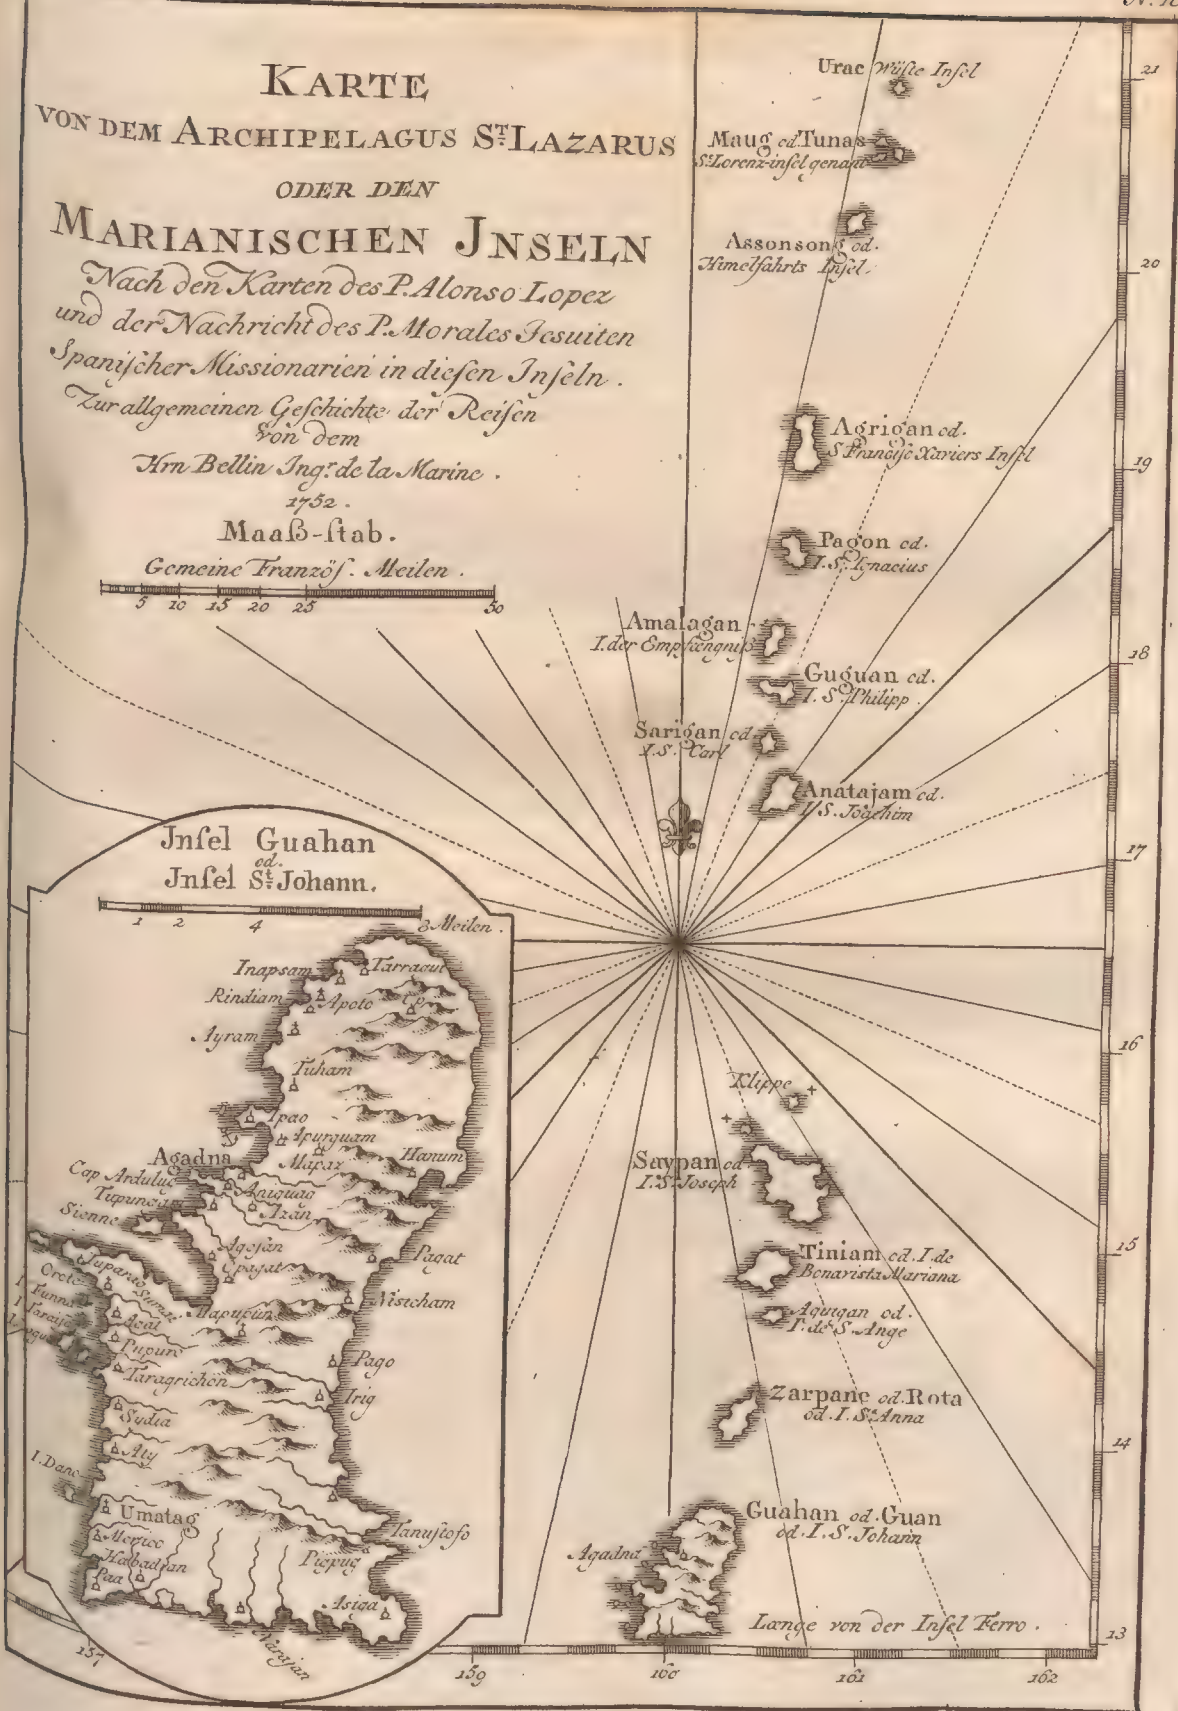 KARTE
VON DEM ARCHIPELAGUS ST. LAZARUS
ODER DEN
MARIANISCHEN JNSELN
Nach den Karten des P. Alonso Lopez
und der Nachricht des P. Morales Jesuiten
Spanischer Missionarien in diesen Inseln.
Zur allgemeinen Geschichte der Reisen
von dem
Hrn Bellin Ingr. de la Marine.
1752.
Maaß-stab.
Gemeine Französ. Meilen.
5 10 15 20 25 50
Urac Wüste Insel
Maug od. Tunas
St. Lorenz-insel genant
Assonsong od.
Himelfahrts Insel.
Agrigan od.
S Francisc Xariers Insel
Pagon od.
I. S. Ignacius
Amalagan
I. der Empfængniß
Guguan od.
I. S. Philipp
Sarigan od.
I. S. Carl
Anatajam od.
I. S. Joachim
Klippe
Saypan od
I. S. Joseph
Tiniam od. I. de
Bonavista Mariana
Aguigan od.
I. de S. Ange
Zarpane od. Rota
od. I. S. Anna
Guahan od. Guan
od. I. S. Johann
Agadna
Længe von der Insel Ferro.
21
20
19
18
17
16
15
14
13
157 159 160 161 162
Jnsel Guahan
od.
Jnsel St. Johann.
1 2 4 8 Meilen.
Inapsam
Tarragui
Rindiam
Apoto
Ayram
Tuham
Ipao
Apurguam
Agadna
Mapaz
Hanum
Cap Aduluc
Aniguag
Azan
Sienne
Agosan
Pagat
Nisicham
Mapupun
Orote
Acat
Pupuro
Pago
Taragrichon
Irig
Sydia
Aty
I. Dano
Umatag
Merizo
Habadian
Paa
Tanustofo
Piepug
Asiga